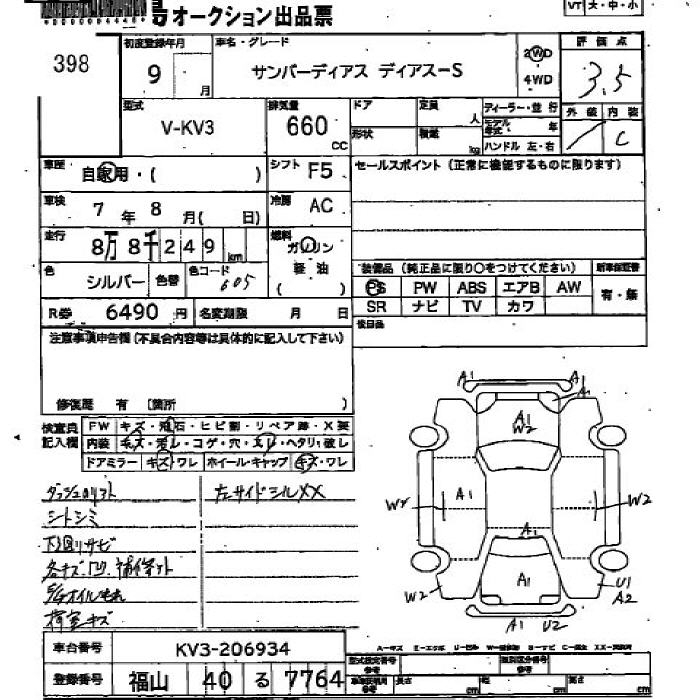 号オークション出品票
VT 大・中・小
398
初度登録年月
9 月
車名・グレード
サンバーディアス ディアスーS
2WD
4WD
評価点
3.5
外装 内装
C
型式
V-KV3
排気量
660 CC
ドア
定員 人
形状
積載 kg
ディーラー・並行
モデル年式 年
ハンドル 左・右
車歴
自家用・( )
シフト
F5
セールスポイント (正常に機能するものに限ります)
車検
7 年 8 月( 日)
冷房
AC
走行
8万 8千 2 4 9 km
燃料
ガソリン
軽油
( )
色
シルバー
色替
色コード
605
装備品 (純正品に限り○をつけてください)
新車保証書
有・無
PS PW ABS エアB AW
SR ナビ TV カワ
R券 6490 円
名変期限 月 日
後日品
注意事項申告欄 (不具合内容等は具体的に記入して下さい)
修復歴 有 〔箇所 )
検査員記入欄
FW キズ・飛石・ヒビ割・リペア跡・X要
内装 キズ・汚レ・コゲ・穴・スレ・ヘタリ・破レ
ドアミラー キズ・ワレ ホイール・キャップ キズ・ワレ
左サイドシルXX
シートシミ
下回リサビ
オイルもれ
荷室キズ
A1
A1
A1
W2
W2
A1
W2
W2
A1
U1
A2
A1 U2
車台番号 KV3-206934
登録番号 福山 40 る 7764
型式指定番号 参考
類別区分番号 参考
長さ cm
幅 cm
高さ cm